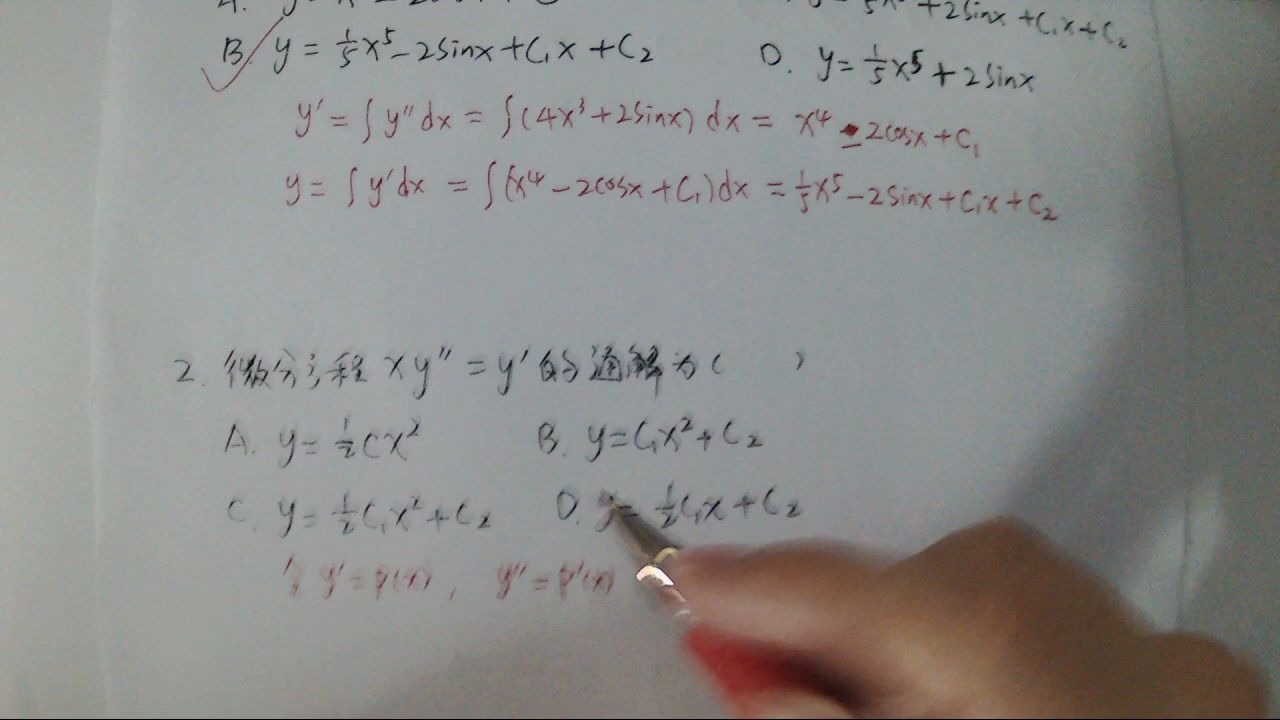 B y = 1/5 x⁵ - 2sinx + C₁x + C₂    D. y = 1/5 x⁵ + 2sinx
y' = ∫ y'' dx = ∫ (4x³ + 2sinx) dx = x⁴ - 2cosx + C₁
y = ∫ y' dx = ∫ (x⁴ - 2cosx + C₁) dx = 1/5 x⁵ - 2sinx + C₁x + C₂
2. 微分方程 xy'' = y' 的通解为 (    )
A. y = 1/2 Cx²    B. y = C₁x² + C₂
C. y = 1/2 C₁x² + C₂    D. y = 1/2 C₁x + C₂
令 y' = p(x), y'' = p'(x)